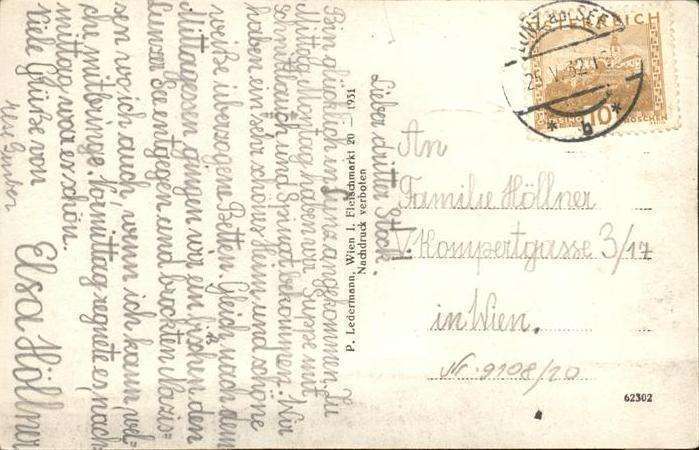 Lieber dritter Stock.
Bin glücklich in Lunz angekommen. Zu
Mittag Montag haben wir Suppe mit
Schnittlauch und Spinat bekommen. Wir
haben ein sehr schönes Heim und schöne
weiße überzogene Betten. Gleich nach dem
Mittagessen gingen wir ein bißchen den
Lunzer See entgegen und brockten Narzis-
sen wo ich auch, wenn ich kann wel-
che mitbringe. Vormittag regnete es, nach-
mittag war es schön.
Viele Grüße von
Elsa Höllner
P. Ledermann, Wien I. Fleischmarkt 20 — 1931
Nachdruck verboten
LUNZ am SEE
25. V. 32
* b *
ÖSTERREICH
10
GROSCHEN
An
Familie Höllner
V. Kompertgasse 3/17
in Wien.
Nr. 9108/20
62302